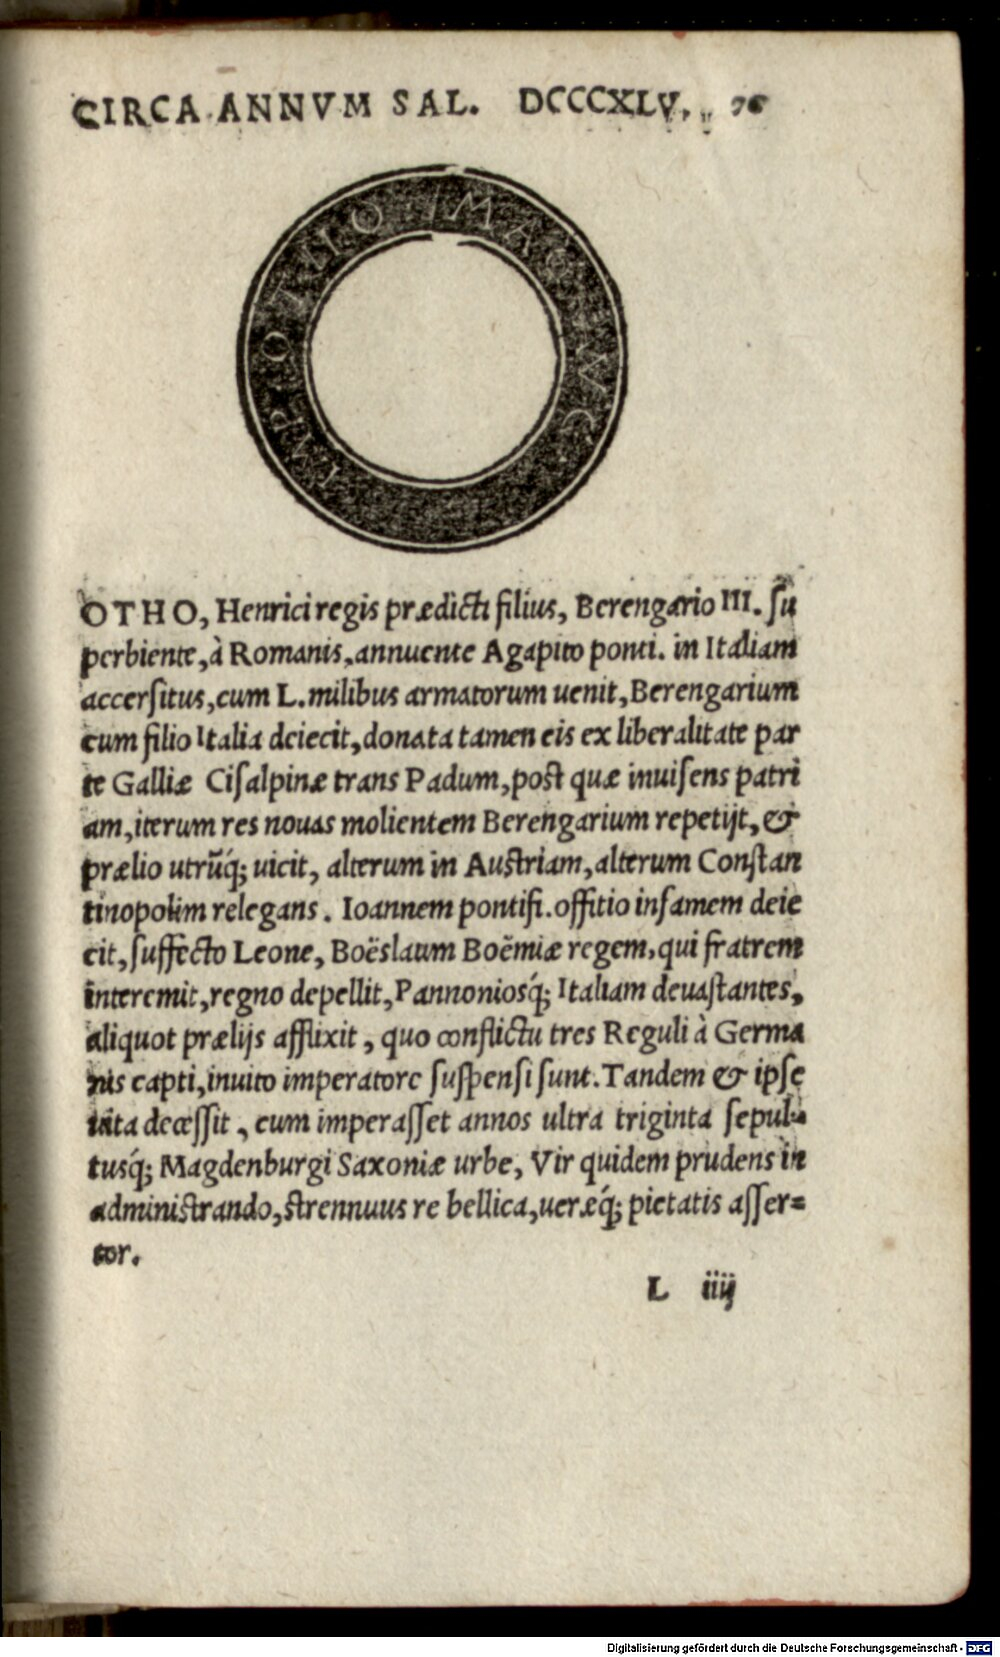 CIRCA ANNVM SAL. DCCCXLV. 76
IMP OTHO I MAG AVG.
OTHO, Henrici regis prædicti filius, Berengario III. ſu
perbiente, à Romanis, annuente Agapito ponti. in Italiam
accerſitus, cum L. milibus armatorum uenit, Berengarium
cum filio Italia deiecit, donata tamen eis ex liberalitate par
te Galliæ Ciſalpinæ trans Padum, poſt quæ inuiſens patri
am, iterum res nouas molientem Berengarium repetijt, &
prælio utrūq́; uicit, alterum in Auſtriam, alterum Conſtan
tinopolim relegans. Ioannem pontifi. offitio infamem deie
cit, ſuffecto Leone, Boëslaum Boëmiæ regem, qui fratrem
interemit, regno depellit, Pannoniosq́; Italiam deuaſtantes,
aliquot prælijs afflixit, quo conflictu tres Reguli à Germa
nis capti, inuito imperatore ſuſpenſi ſunt. Tandem & ipſe
uita deceſſit, cum imperaſſet annos ultra triginta ſepul-
tusq́; Magdenburgi Saxoniæ urbe, Vir quidem prudens in
adminiſtrando, ſtrennuus re bellica, ueræq́; pietatis aſſer=
tor.
L iiij
Digitalisierung gefördert durch die Deutsche Forschungsgemeinschaft - DFG